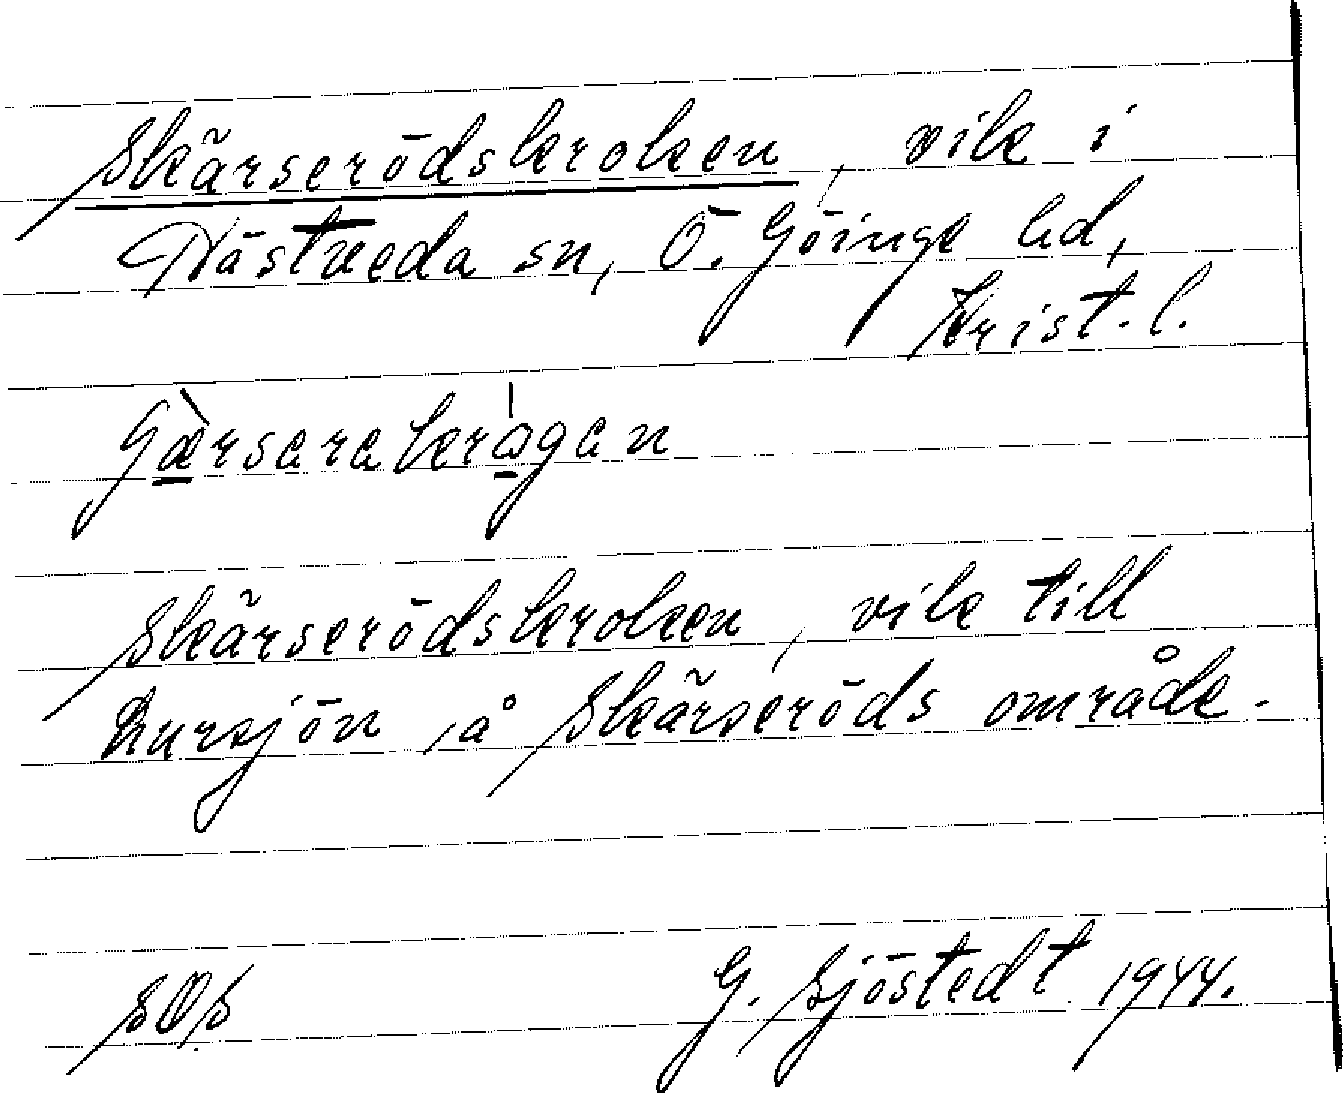 Skärserödskroken, vik i
Nästveda sn, Ö. Göinge hd,
Krist. l.
gærsarakrågan
Skärserödskroken, vik till
Lursjön, å Skärseröds område.
SOS G. Sjöstedt 1944.